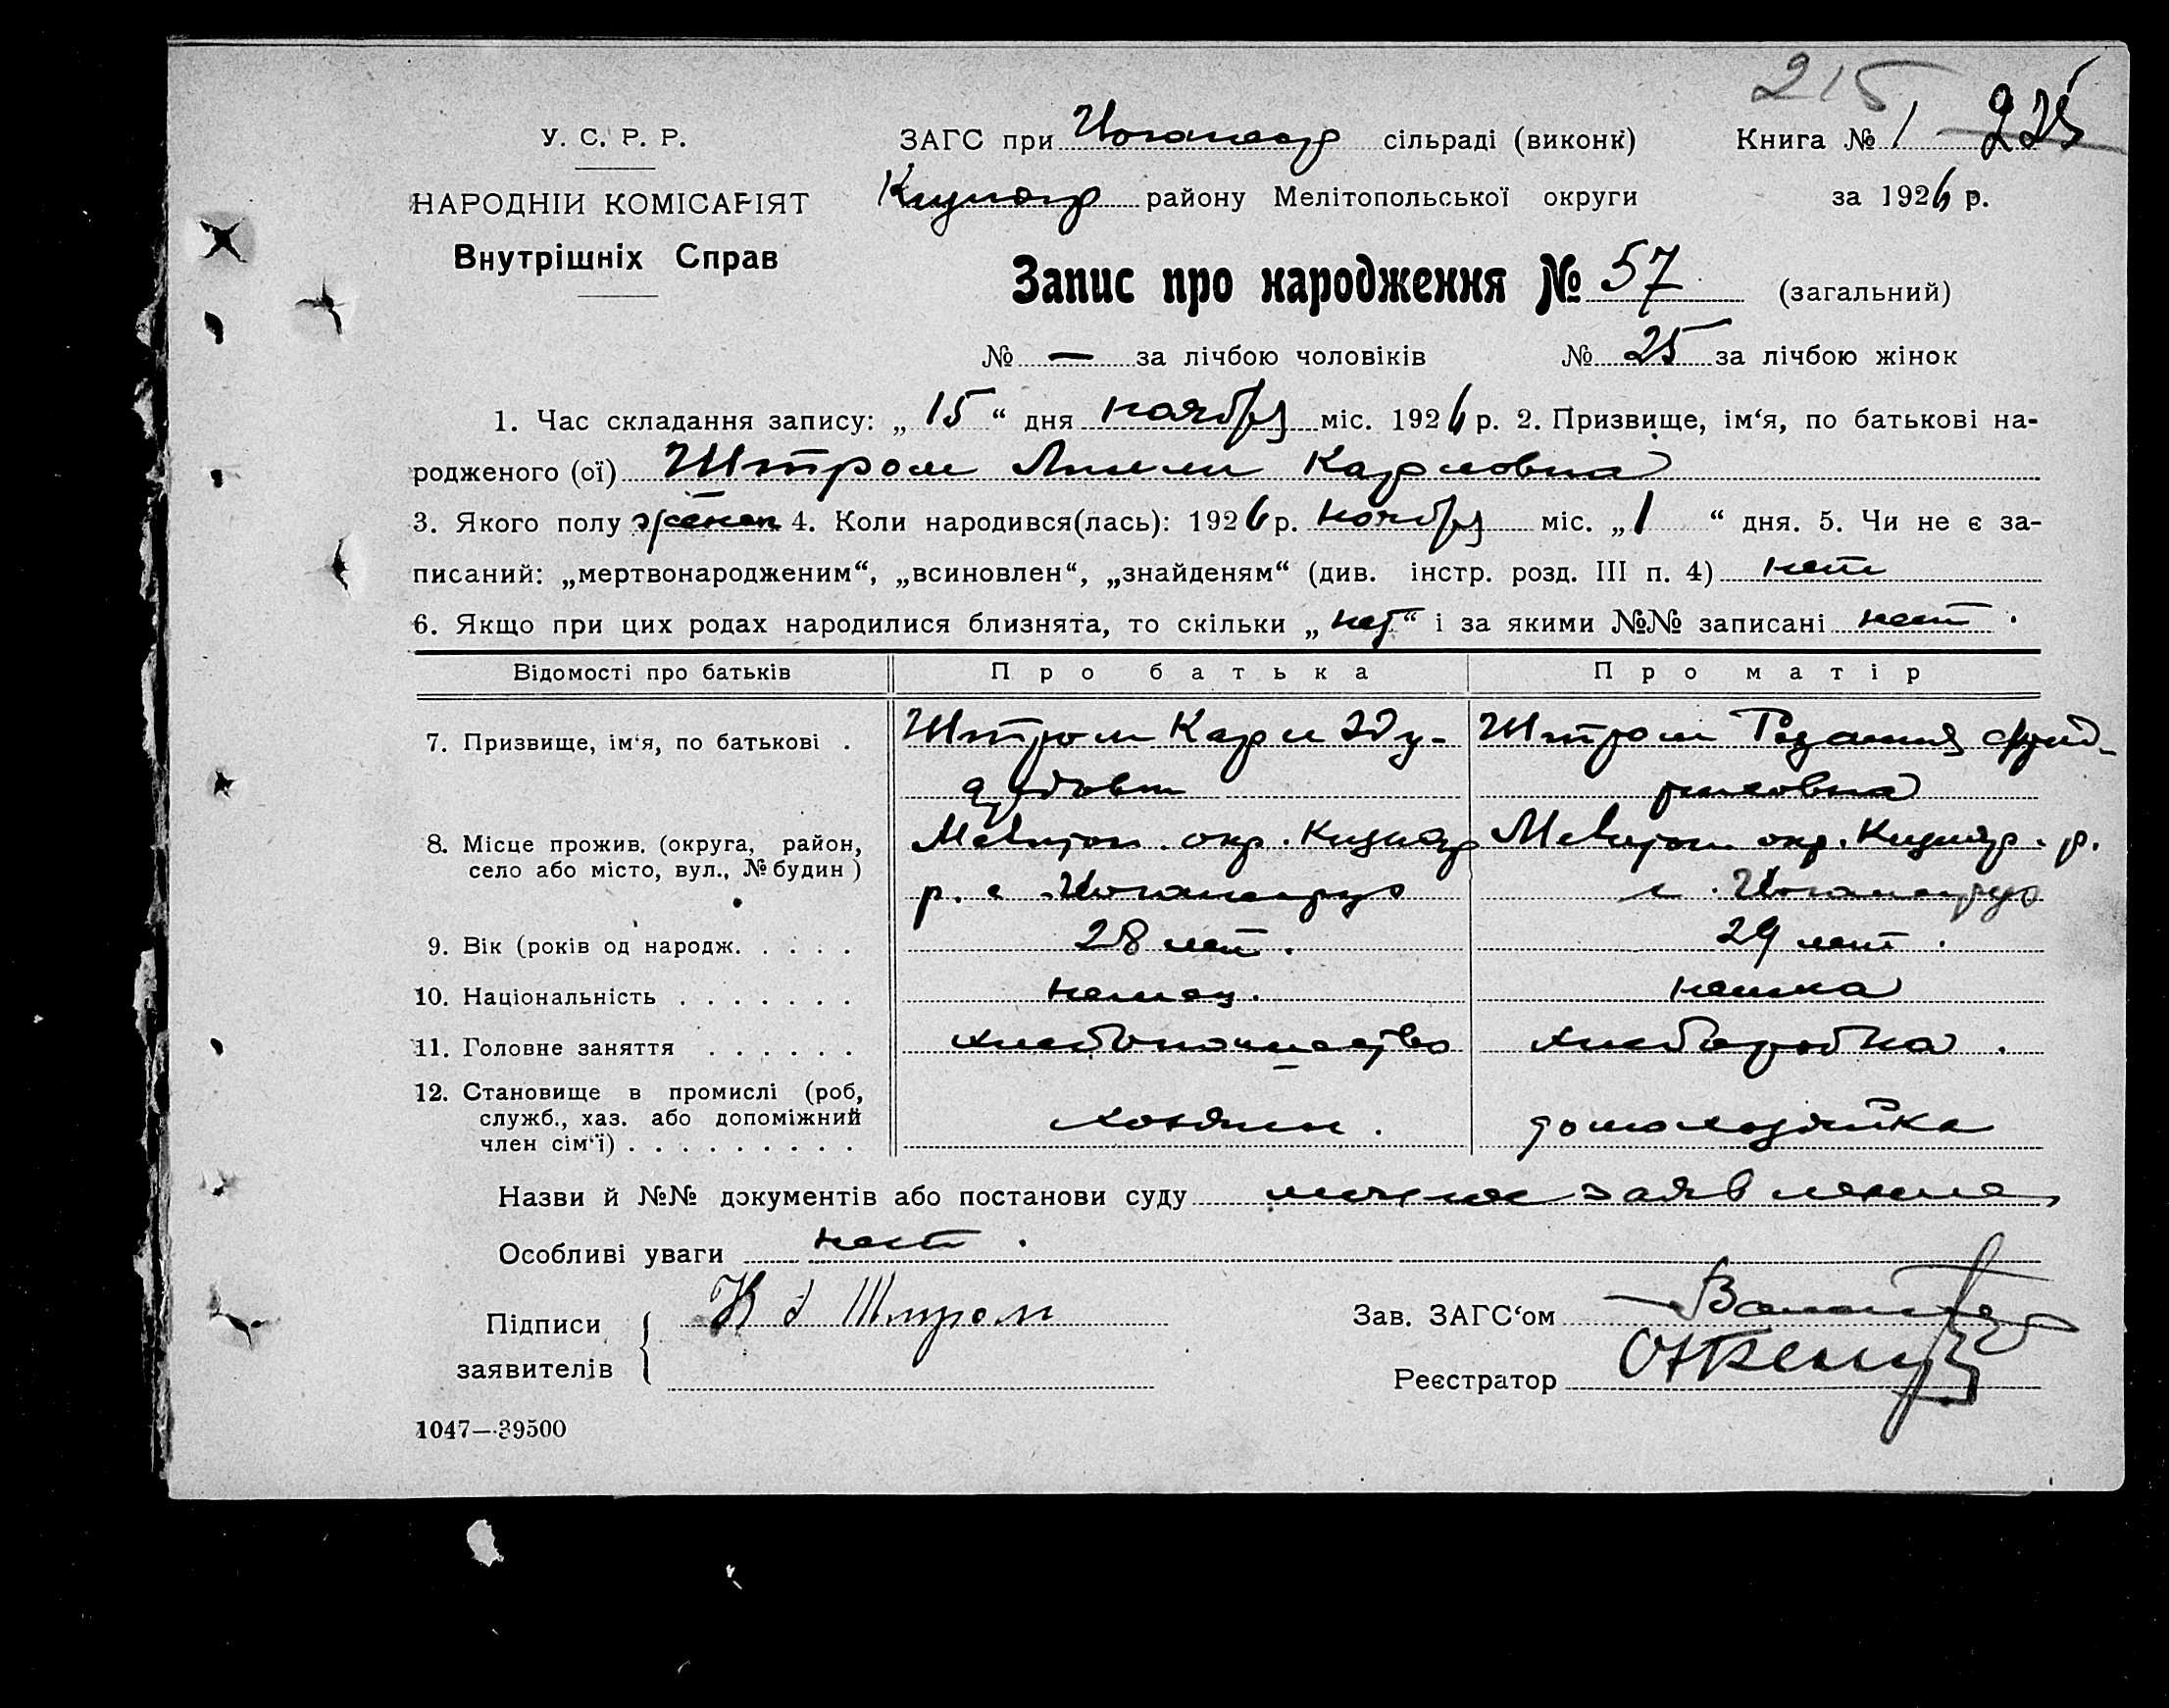 215
У. С. Р. Р.
ЗАГС при сільраді (виконк)
Книга № 1 225
НАРОДНІЙ КОМІСАРІЯТ
району Мелітопольської округи
за 1926 р.
Внутрішніх Справ
Запис про народження № 57 (загальний)
№ — за лічбою чоловіків № 25 за лічбою жінок
1. Час складання запису: „ 15 “ дня ноября міс. 1926 р. 2. Призвище, ім‘я, по батькові на-
родженого (ої) Штром Лилли Карловна
3. Якого полу женск 4. Коли народився(лась): 1926 р. ноября міс. „ 1 “ дня. 5. Чи не є за-
писаний: „мертвонародженим“, „всиновлен“, „знайденям“ (див. інстр. розд. III п. 4) нет
6. Якщо при цих родах народилися близнята, то скільки „ нет “ і за якими №№ записані нет .
Відомості про батьків Про батька Про матір
7. Призвище, ім‘я, по батькові . Штром Карл Эду- Штром фрид-
ардович риховна
8. Місце прожив. (округа, район, Мелитоп. окр. Кизияр Мелитоп окр. Кизияр. р.
село або місто, вул., № будин ) р. с с.
9. Вік (років од народж. . . . . 28 лет . 29 лет .
10. Національність . . . . . . . немец. немка
11. Головне заняття . . . . . . хлебопашество хлеборобка .
12. Становище в промислі (роб,
служб., хаз. або допоміжний хозяин . домохозяйка
член сім‘ї) . . . . . . . . .
Назви й №№ документів або постанови суду личное заявление
Особливі уваги нет .
Підписи К Э Штром Зав. ЗАГС‘ом
заявителів Реєстратор
1047—39500